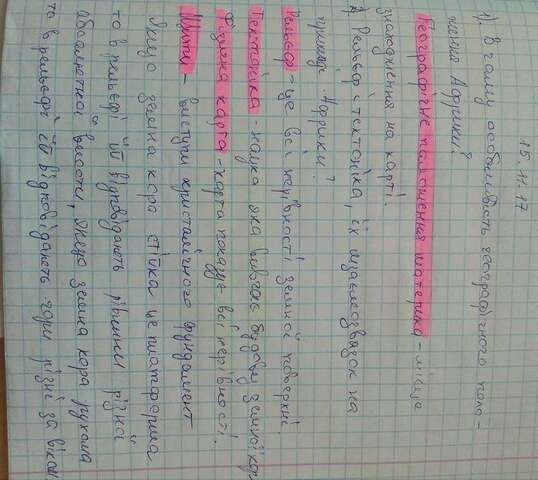 15.11.17
1) В чому особливість географічного поло-
ження Африки?
Географічне положення материка - місце
знаходження на карті.
2) Рельєф і тектоніка, їх взаємозвязок на
прикладі Африки?
Рельєф - це всі нерівності земної поверхні.
Тектоніка - наука яка вивчає будову земної кори
Фізична карта - карта показує всі нерівності.
Щити - виступи кристалічного фундамент
Якщо земна кора стійка це платформа
то в рельєфі їй відповідають рівнини різної
абсолютної висоти, якщо земна кора рухома
то в рельєфі їй відповідають гори різні за віком